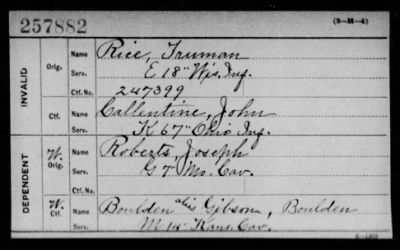 257882
(3-M-4)
INVALID
Orig.
Name Rice, Truman
Serv. E 18" Wis. Inf.
Ctf. No. 247399
Ctf.
Name Callentine, John
Serv. K 67" Ohio Inf.
DEPENDENT
W. Orig.
Name Roberts, Joseph
Serv. G 7" Mo. Cav.
Ctf. No.
W. Ctf.
Name Boulden alias Gibson, Boulden
Serv. M Kans. Cav.